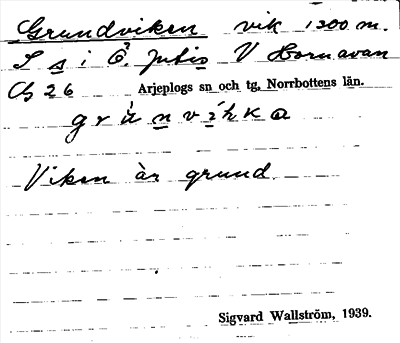 Grundviken vik 1200 m.
S s i Ö. Jutis V Hornavan
Cb 26 Arjeplogs sn och tg, Norrbottens län.
Viken är grund.
Sigvard Wallström, 1939.